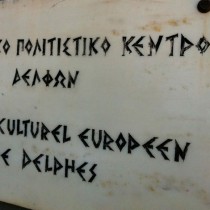 ΚΟ ΠΟΛΙΤΙΣΤΙΚΟ ΚΕΝΤΡΟ
ΔΕΛΦΩΝ
CULTUREL EUROPEEN
E DELPHES